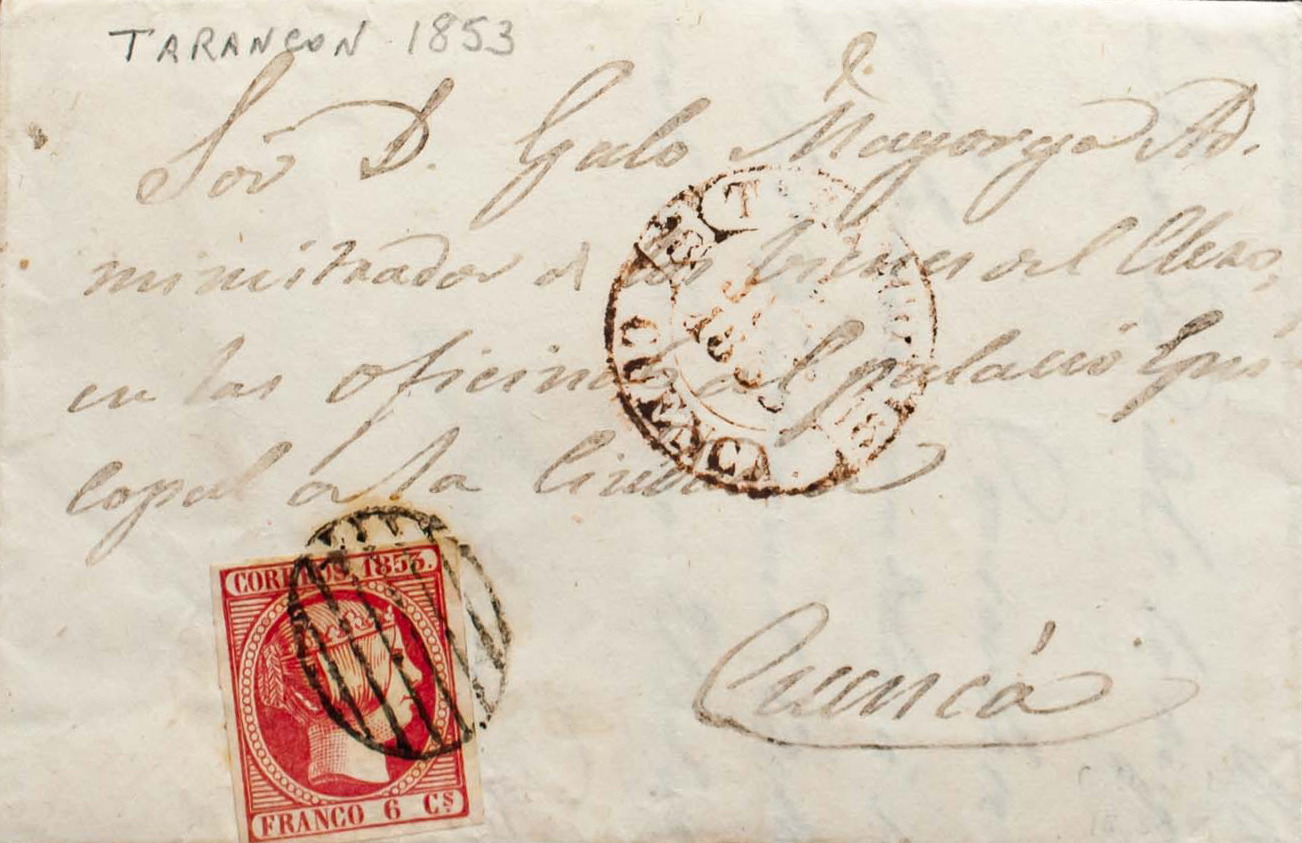 TARANCON 1853
Sor D. Galo Mayorga Ad.
ministrador de los bienes del Clero,
en las oficinas del palacio Epis-
copal de la Ciudad de
Cuenca
T
CUENCA
CORREOS. 1853.
FRANCO 6 Cs